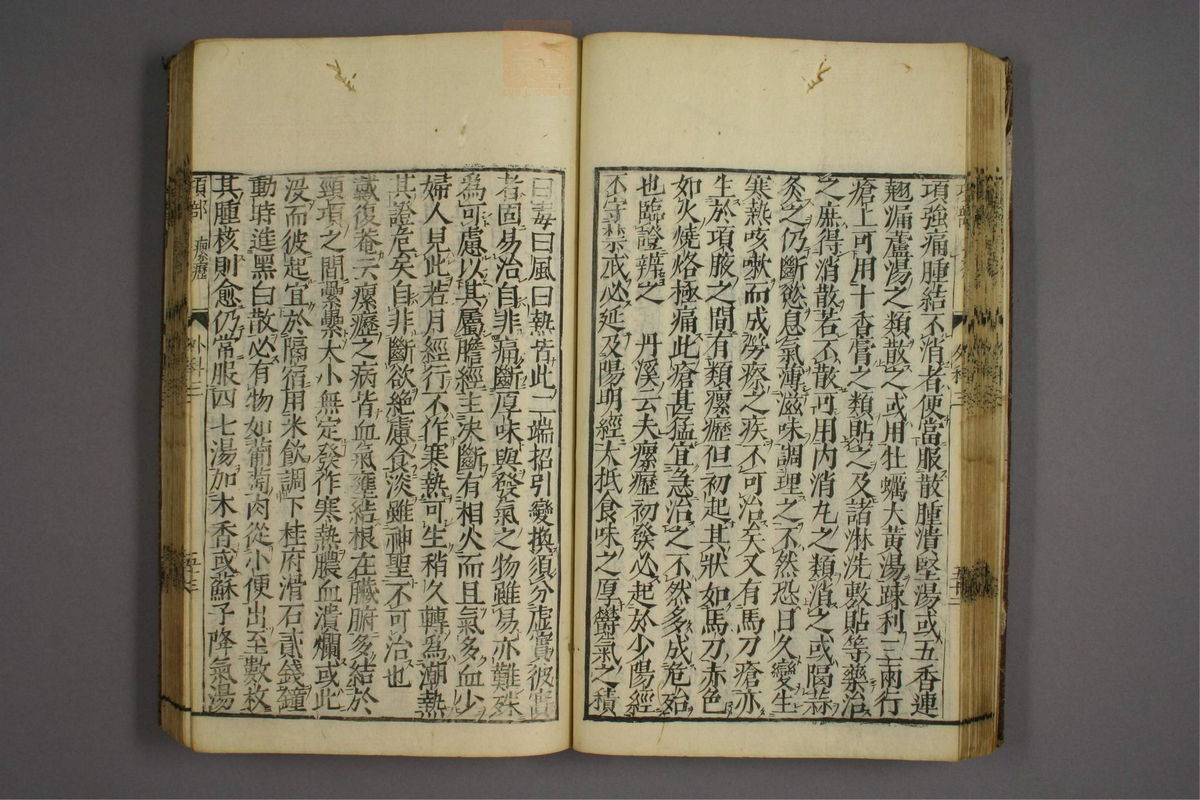 項強痛腫結不消者便當服散腫潰堅湯或五香連
翹漏蘆湯之類散之或用牡蠣大黃湯踈利三兩行
瘡上可用十香膏之類貼之及諸淋洗敷貼等藥治
之庶得消散若不散可用内消丸之類消之或隔蒜
灸之仍斷慾息氣薄滋味調理之不然恐日久變生
寒熱咳嗽而成勞瘵之疾不可治矣又有馬刀瘡亦
生於項腋之間有類瘰癧但初起其狀如馬刀赤色
如火燒烙極痛此瘡甚猛宜急治之不然多成危殆
也臨證辨之 丹溪云夫瘰癧初發必起於少陽經
不守禁戒必延及陽明經大抵食味之厚鬱氣之積
曰毒曰風曰熱皆此二端招引變換須分虛實彼實
者固易治自非痛斷厚味與發氣之物雖易亦難殊
為可慮以其屬膽經主決斷有相火而且氣多血少
婦人見此若月經行不作寒熱可生稍久轉為潮熱
其證危矣自非斷欲絕慮食淡雖神聖不可治也
戴復菴云瘰癧之病皆血氣壅結根在臟腑多結於
頸項之間纍纍大小無定發作寒熱膿血潰爛或此
没而彼起宜於隔宿用米飲調下桂府滑石貳錢鐘
動時進黑白散必有物如葡萄肉從小便出至數枚
其腫核則愈仍常服四七湯加木香或蘇子降氣湯
項部 瘰癧 外科三 五十三